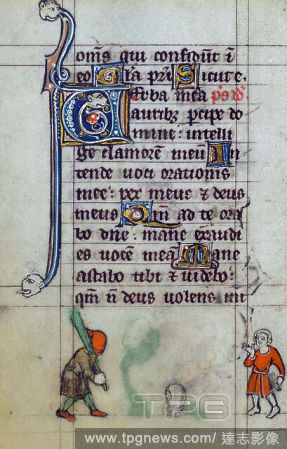 om̄s qui confidūt ī
eo Gl̄a pr̄i Sicut e.
Verba mea p̄s d̄d
auribꝫ ꝑcipe do
mine: intelli
ge clamorē meū In
tende uoci orationis
mee: rex meus ⁊ deus
meus Qm̄ ad te ora
bo dn̄e: mane exaudi
es uocē meā Mane
astabo tibi ⁊ uidebo:
qm̄ n̄ deus uolens ini
TPG
www.tpgnews.com/ 達志影像